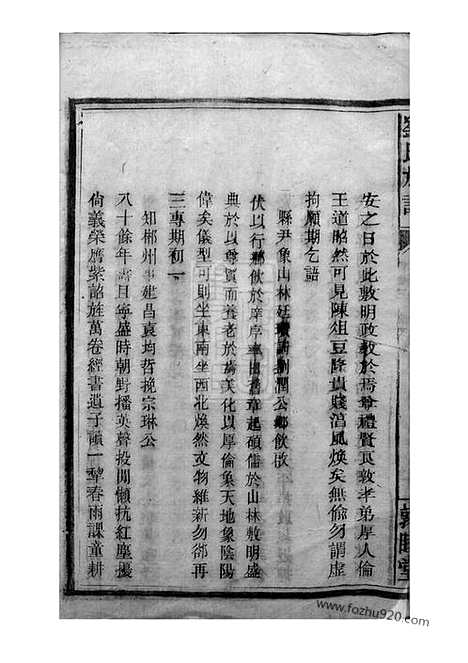 劉氏族譜
安之日於此敷明政教於焉尊禮賢良敦孝弟厚人倫
王道昭然可見陳俎豆隆貴賤淳風煥矣無儉勿謂虛
拘願期乞語
縣尹象山林廷 請劉潤公鄉飲啟
伏以行鄉飲於庠序率由舊章起碩儒於山林敷明盛
典於以尊賢而養老於焉美化以厚倫象天地象陰陽
偉矣儀型可則坐東南坐西北煥然文物維新勿郤再
三專期初一
知郴州事建昌袁均哲挽宗琳公
八十餘年壽且寧盛時朝野播英聲投閒懶抗紅塵擾
尚義榮膺紫詔旌萬卷經書遺子領一犂春雨課童耕
敦睦堂
www.fozhu920.com